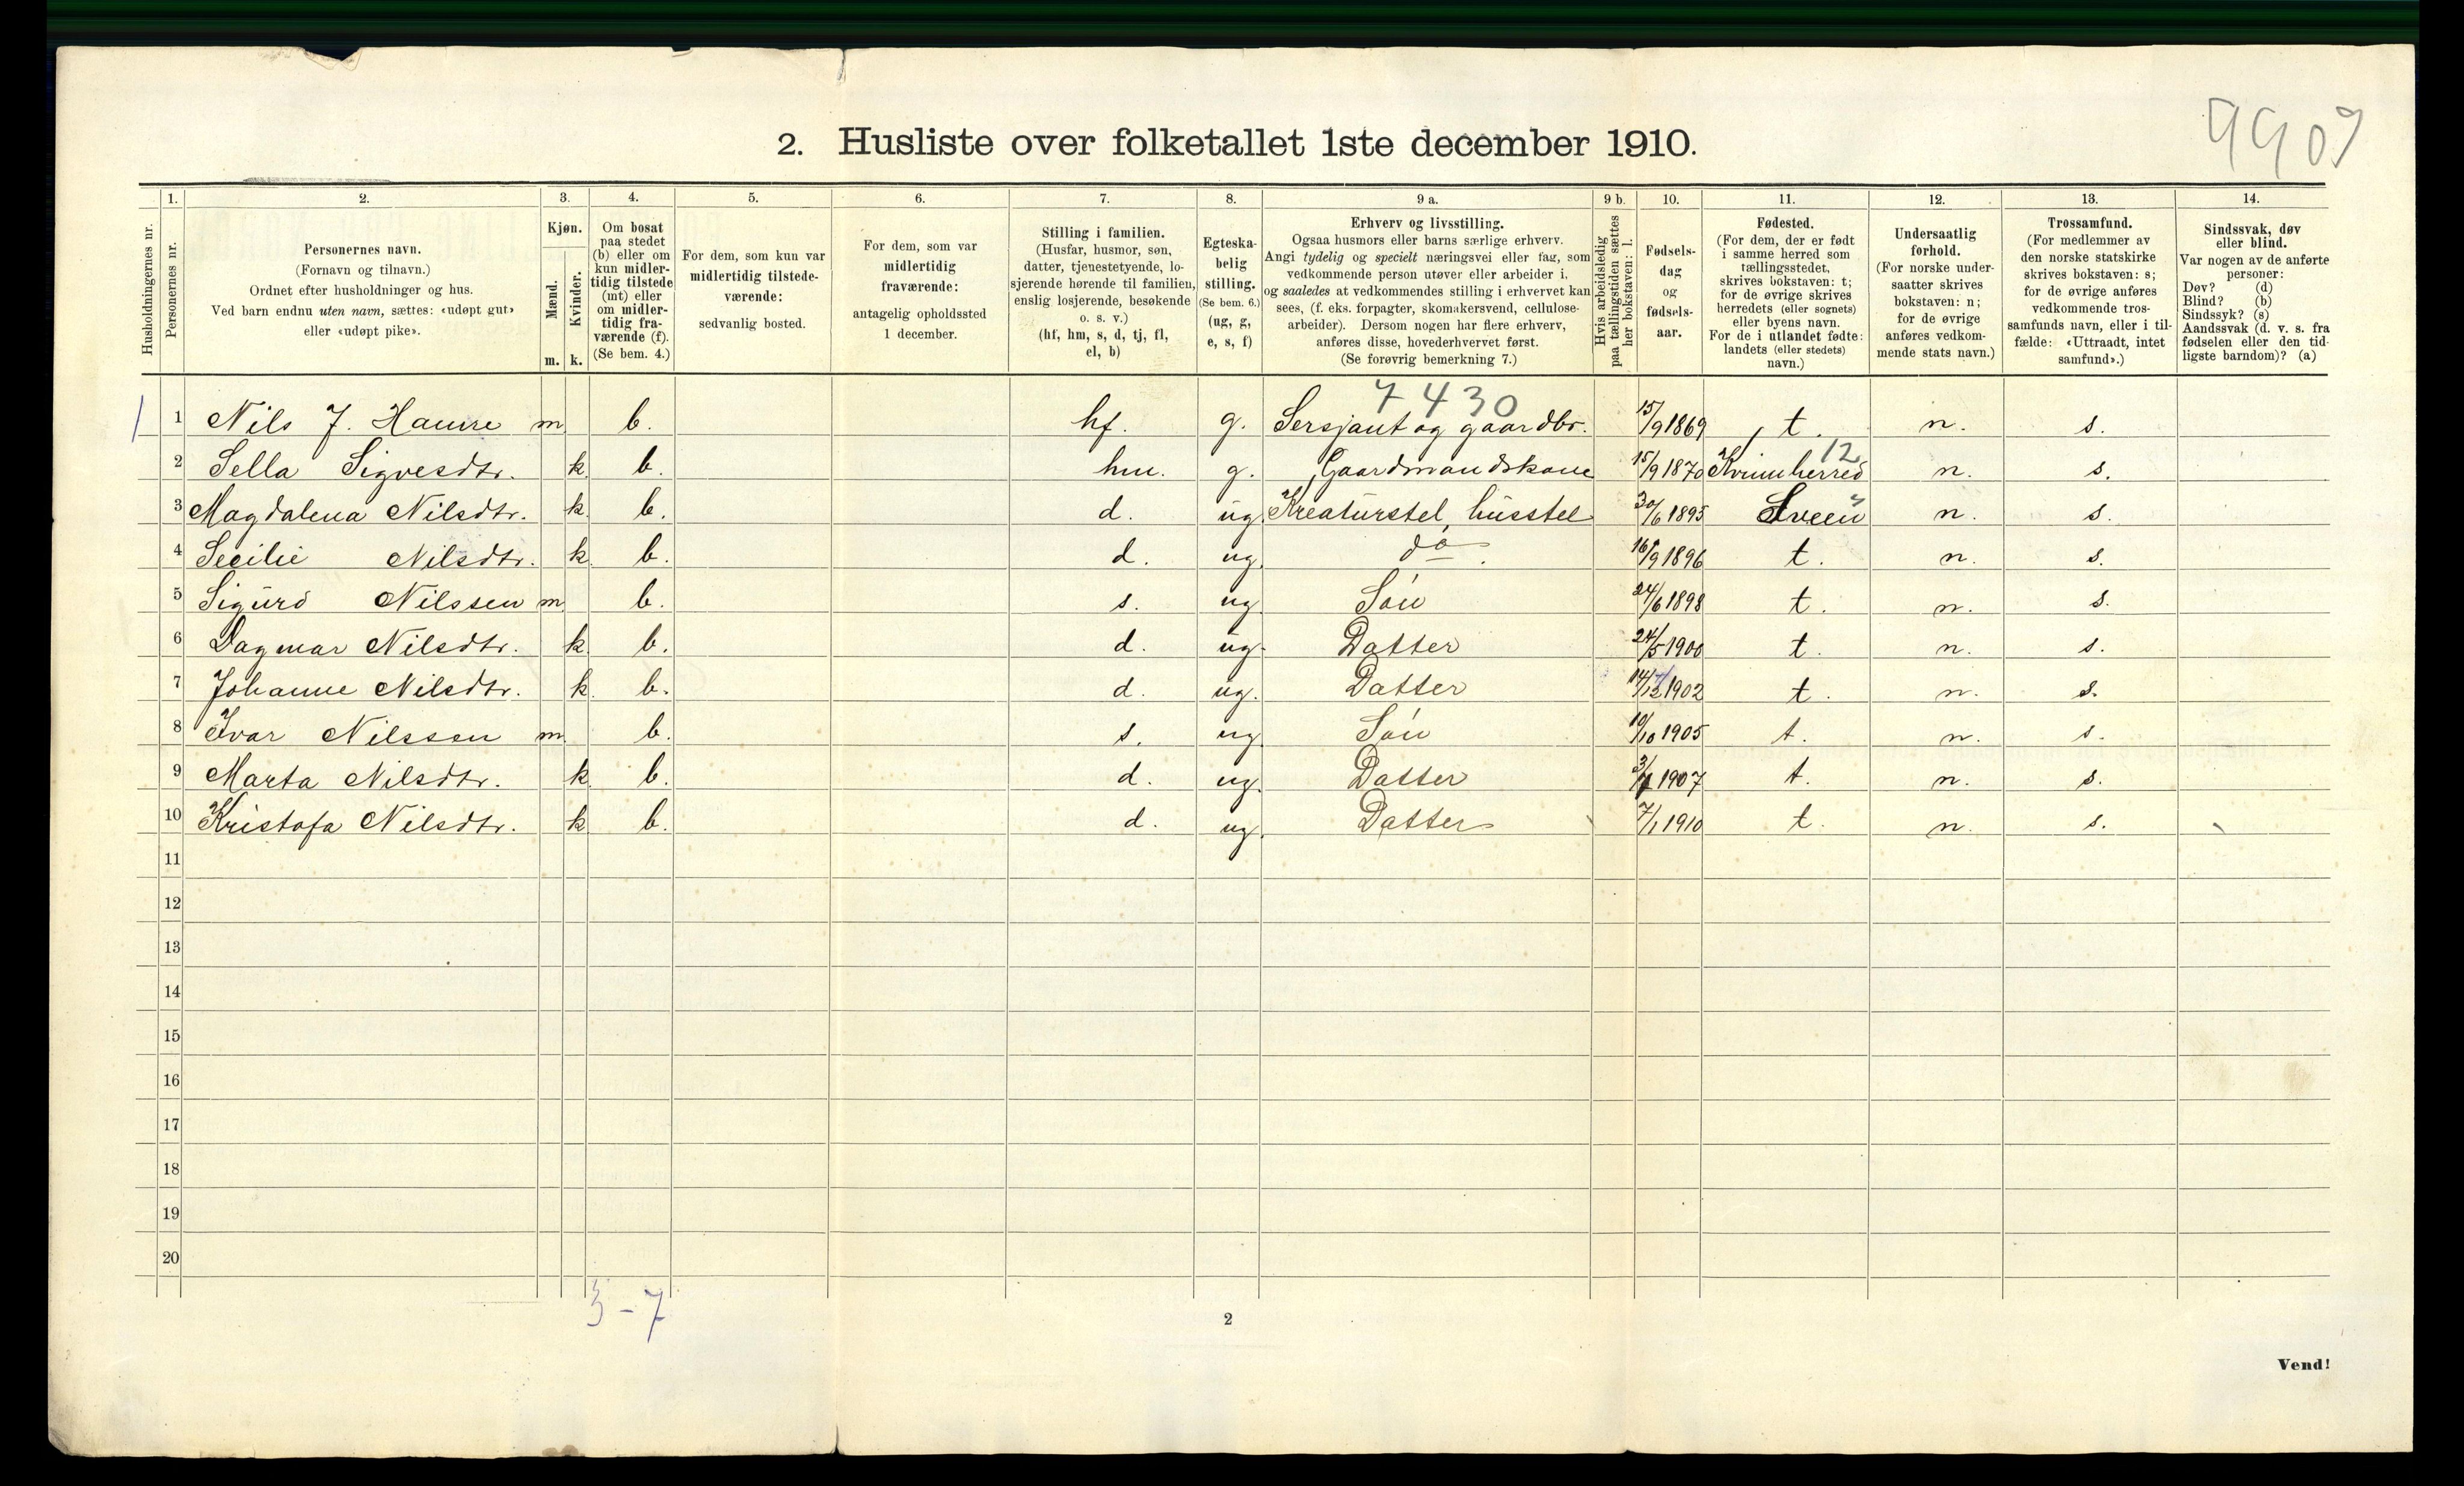 9907
2. Husliste over folketallet 1ste december 1910.
Husholdningernes nr.
1.
Personernes nr.
2.
Personernes navn.
(Fornavn og tilnavn.)
Ordnet efter husholdninger og hus.
Ved barn endnu uten navn, sættes: «udøpt gut»
eller «udøpt pike».
3.
Kjøn.
Mænd.
Kvinder.
m. k.
4.
Om bosat
paa stedet
(b) eller om
kun midler-
tidig tilstede
(mt) eller
om midler-
tidig fra-
værende (f).
(Se bem. 4.)
5.
For dem, som kun var
midlertidig tilstede-
værende:
sedvanlig bosted.
6.
For dem, som var
midlertidig
fraværende:
antagelig opholdssted
1 december.
7.
Stilling i familien.
(Husfar, husmor, søn,
datter, tjenestetyende, lo-
sjerende hørende til familien,
enslig losjerende, besøkende
o. s. v.)
(hf, hm, s, d, tj, fl,
el, b)
8.
Egteska-
belig
stilling.
(Se bem. 6.)
(ug, g,
e, s, f)
9 a.
Erhverv og livsstilling.
Ogsaa husmors eller barns særlige erhverv.
Angi tydelig og specielt næringsvei eller fag, som
vedkommende person utøver eller arbeider i,
og saaledes at vedkommendes stilling i erhvervet kan
sees, (f. eks. forpagter, skomakersvend, cellulose-
arbeider). Dersom nogen har flere erhverv,
anføres disse, hovederhvervet først.
(Se forøvrig bemerkning 7.)
9 b.
Hvis arbeidsledig
paa tællingstiden sættes
her bokstaven: l.
10.
Fødsels-
dag
og
fødsels-
aar.
11.
Fødested.
(For dem, der er født
i samme herred som
tællingsstedet,
skrives bokstaven: t;
for de øvrige skrives
herredets (eller sognets)
eller byens navn.
For de i utlandet fødte:
landets (eller stedets)
navn.)
12.
Undersaatlig
forhold.
(For norske under-
saatter skrives
bokstaven: n;
for de øvrige
anføres vedkom-
mende stats navn.)
13.
Trossamfund.
(For medlemmer av
den norske statskirke
skrives bokstaven: s;
for de øvrige anføres
vedkommende tros-
samfunds navn, eller i til-
fælde: «Uttraadt, intet
samfund».)
14.
Sindssvak, døv
eller blind.
Var nogen av de anførte
personer:
Døv? (d)
Blind? (b)
Sindssyk? (s)
Aandssvak (d. v. s. fra
fødselen eller den tid-
ligste barndom)? (a)
7430
1 1 Nils J. Hamre m b. hf. g. Sersjant og gaardbr. 15/9 1869 t. n. s.
12
2 Sella Sigvesdtr. k b. hm. g. Gaardmandskone 15/9 1870 Kvinnherred n. s.
3 Magdalena Nilsdtr. k b. d. ug. Kreaturstel, husstel 30/6 1895 Sveen n. s.
4 Secilie Nilsdtr. k. b. d. ug. do. 16/9 1896 t. n. s.
5 Sigurd Nilssen m b. s. ug Sön 24/6 1898 t. n. s.
6 Dagmar Nilsdtr. k b. d. ug. Datter 24/5 1900 t. n. s.
7 Johanne Nilsdtr. k. b. d. ug. Datter 14/12 1902 t. n. s.
8 Ivar Nilssen m b. s. ug. Sön 10/10 1905 t. n. s.
9 Marta Nilsdtr. k b. d. ug. Datter 1907 t. n. s.
10 Kristofa Nilsdtr. k b. d. ug. Datter 7/1 1910 t. n. s.
11
12
13
14
15
16
17
18
19
20
3-7
2
Vend!